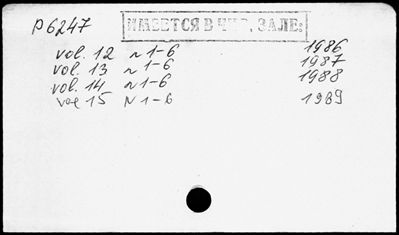 P6247
ИМЕЕТСЯ В ЧИТ. ЗАЛЕ:
vol. 12 N 1-6 1986
vol. 13 N 1-6 1987
vol. 14 N 1-6 1988
vol 15 N 1-6 1989